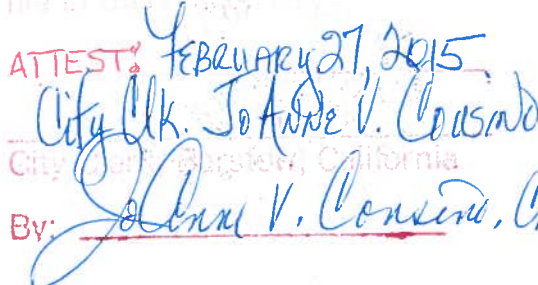 ATTEST: FEBRUARY 27, 2015
City Clk. JoAnne V. Cousino
City Clerk, Barstow, California
By: JoAnne V. Cousino, C